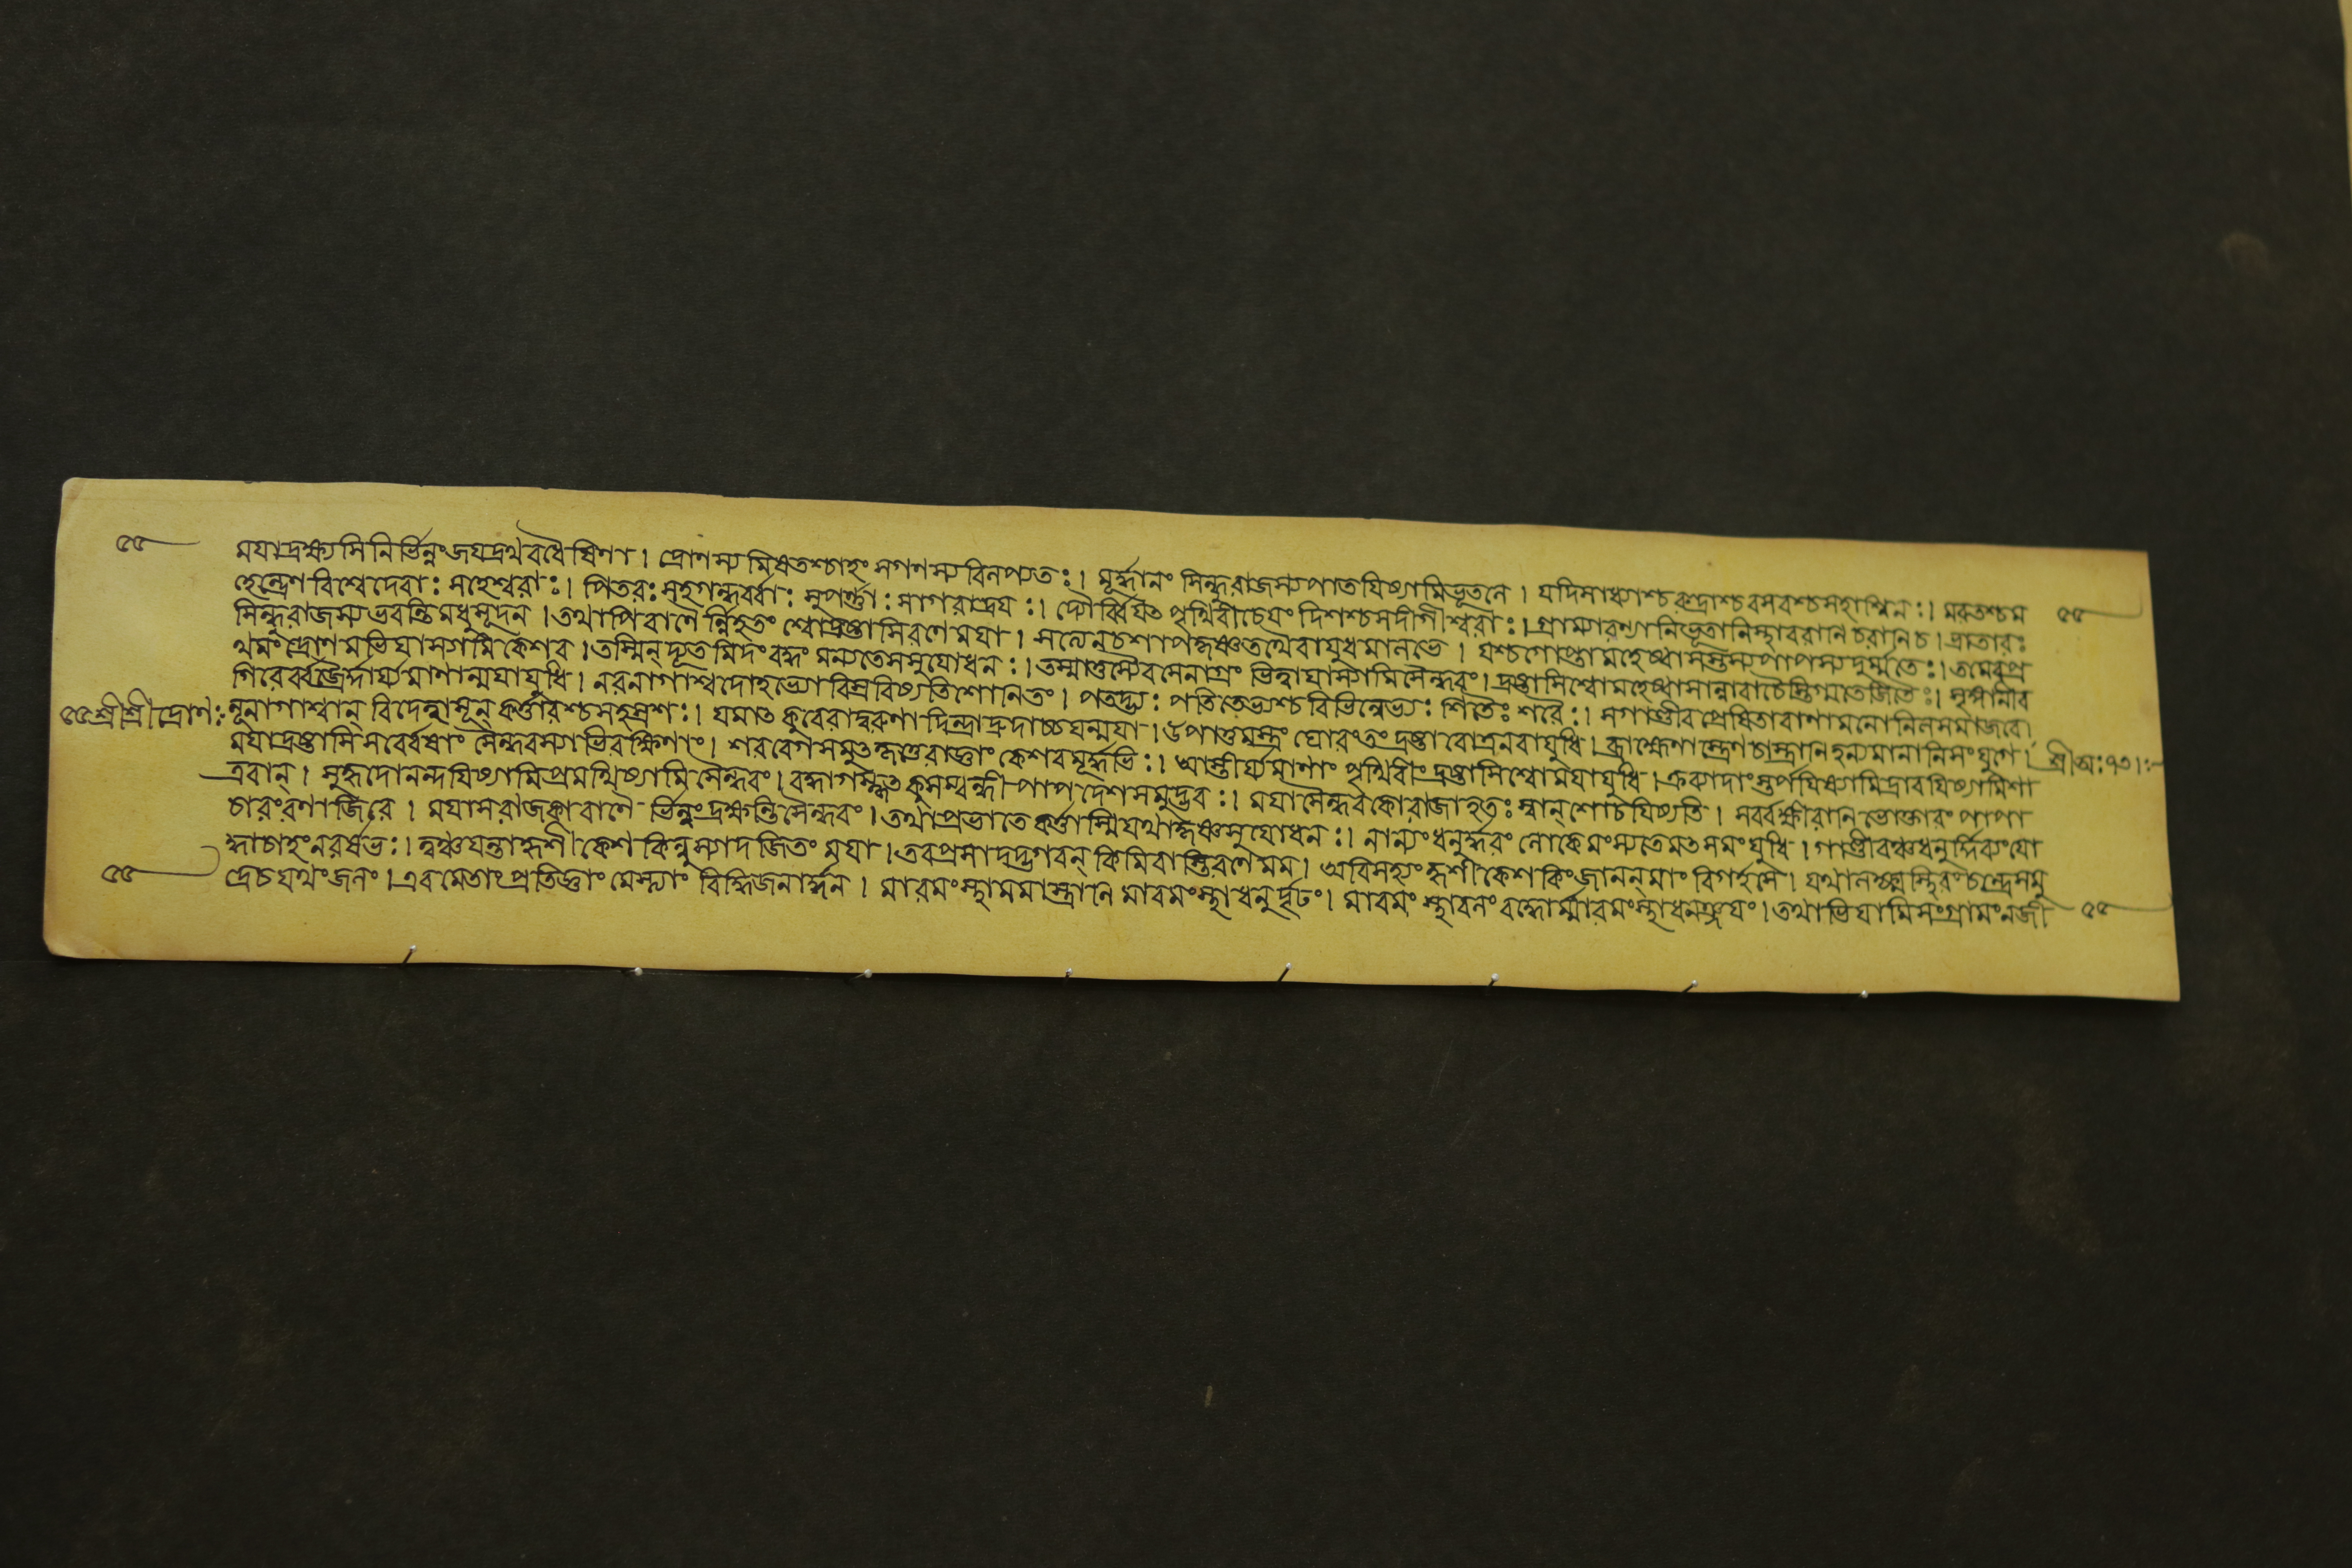 ৫৫ ময়াদ্রক্ষ্যসি নির্ভিন্নংজয়দ্রথবধৈষিণা। দ্রোণস্য মিষতশ্চাহং সগণস্য বিলপ্যতঃ। মূর্দ্ধানং সিন্ধুরাজস্য পাতয়িষ্যামিভূতলে। যদিসাধ্যাশ্চরুদ্রাশ্চবসবশ্চসহাশ্বিনঃ। মরুতশ্চম
হেন্দ্রেণ বিশ্বেদেবাঃ মহেশ্বরাঃ। পিতরঃ সহগন্ধর্ব্বাঃ সুপর্ণ্ণাঃ সাগরাদ্রয়ঃ। দ্যৌর্ব্বিয়ৎ পৃথিবীচেয়ং দিশশ্চসদীগীশ্বরাঃ। গ্রাম্যারণ্যানিভূতানিস্থাবরানি চরানিচ। ত্রাতারঃ ৫৫
সিন্ধুরাজস্য ভবন্তি মধুসূদন। তথাপি বাণৈ র্ন্নিহতং শ্বোদ্রষ্টাসিরণে ময়া। সত্যেনচশাপেহঞ্চতথৈবায়ুধমালভে। যশ্চগোপ্তা মহেষ্বাসস্তস্য পাপস্য দুর্ম্মতেঃ। তমেবপ্র
থমং দ্রোণ মভিযাস্যামি কেশব। তস্মিন্ দ্যূতমিদং বদ্ধং মন্যতেসসুযোধনঃ। তস্মাত্তস্যৈবসেনাগ্রং ভিত্ত্বাযাস্যামিসৈন্ধবং। দ্রষ্টাসিশ্বোমহেষ্বাসান্নারাচৈস্তিগ্মতেজিতৈঃ। শৃঙ্গানীব
গিরের্ব্বজ্রৈর্দার্য্য মাণান্ময়াযুধি। নরনাগাশ্বদেহেভ্যো বিস্রবিষ্যতিশোনিতং। পতদ্ভ্যঃ পতিতেভ্যশ্চ বিভিন্নেভ্যঃ শিতৈঃ শরৈঃ। সগাণ্ডীব প্রেষিতাবাণা মনোনিলসমাজবে।
৫৫ শ্রীশ্রীদ্রোণঃ নৃনাগাশ্বান্ বিদেহাসূন্ কর্ত্তারশ্চসহস্রশঃ। যমাৎ কুবেরাদ্বরুণা দিন্দ্রাদ্রুদ্রাচ্চযন্ময়া। উপাত্তমস্ত্রং ঘোরংতং দ্রষ্টারোত্রনরাযুধি। ব্রাহ্মেণাস্ত্রেণ চাস্ত্রানিহন্যমানানিসংযুগে। শ্রীঅঃ৭৩।ঃ
ময়াদ্রষ্টাসি সর্ব্বেষাং সৈন্ধবস্যাভিরক্ষিণাং। শরবেগসমুৎকৃত্তৈ রাজ্ঞাং কেশবমূর্দ্ধভিঃ। আস্তীর্য্যমাণাং পৃথিবীং দ্রষ্টাসিশ্বোময়াযুধি। ক্রব্যাদাংস্তর্পয়িষ্যামিদ্রাবয়িষ্যামিশা
ত্রবান্। সুহৃদোনন্দয়িষ্যামিপ্রমথিষ্যামি সৈন্ধবং। বহ্বাগস্কৃৎ কুসম্বন্ধী পাপদেশসমুদ্ভবঃ। ময়াসৈন্ধবকোরাজাহতঃ স্বান্ শোচয়িষ্যতি। সর্ব্বক্ষীরান্ন ভোক্তারং পাপা
চারংরণাজিরে। ময়াসরাজকাবাণৈ র্ভিন্নংদ্রক্ষন্তিসৈন্ধবং। তথাপ্রভাতে কর্ত্তাস্মিযথাকৃষ্ণসুযোধনঃ। নান্যংধনুর্দ্ধরং লোকেমংস্যতেমৎসমংযুধি। গাণ্ডীবঞ্চধনুর্দ্দিব্যংযো
দ্ধাচাহংনরর্ষভঃ। ত্বঞ্চযন্তাহৃষীকেশ কিন্নুস্যাদজিতং ময়া। তবপ্রসাদদ্ভগবন্ কিমিবাস্তিরণে মম। অবিসহ্যং হৃশীকেশ কিংজানন্ মাং বিগর্হসে। যথালক্ষ্মস্থিরংচন্দ্রেসমু
৫৫ দ্রেচযথংজলং। এবমেতাংপ্রতিজ্ঞাং মেসত্যাং বিদ্ধিজনার্দ্দন। মাবমংস্থামমাস্ত্রানি মাবমংস্থাধনুর্দৃঢং। মাবমংস্থাবলং বাহ্বোর্ম্মাবমংস্থাধনঞ্জয়ং। তথাভিযামিসংগ্রামংনজী ৫৫